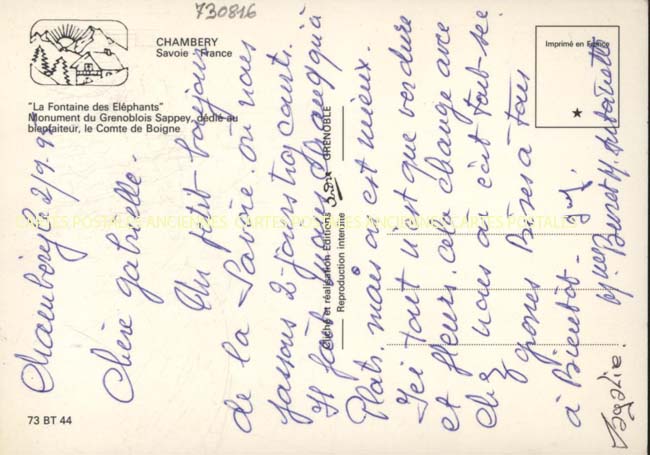 730816
CHAMBERY
Savoie - France
"La Fontaine des Eléphants"
Monument du Grenoblois Sappey, dédié au
bienfaiteur, le Comte de Boigne
Imprimé en France
Cliché et réalisation Editions GRENOBLE
Reproduction interdite
73 BT 44
CARTES POSTALES ANCIENNES CARTES POSTALES ANCIENNES CARTES POSTALES
Chambéry 2/9.9
Chère gabrielle.
Un p'tit bonjour
de la Savoie. où nous
passons 2 jours trop court.
Il fait
Plats. mais ça est mieux.
Ici tout n'est que verdure
et fleurs. cela change avec
chez nous où c'est tout sec.
grosses Bises à tous
à Bientôt.